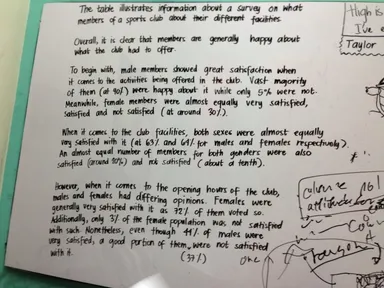 The table illustrates information about a survey on what
members of a sports club about their different facilities.
Overall, it is clear that members are generally happy about
what the club had to offer.
To begin with, male members showed great satisfaction when
it comes to the activities being offered in the club. Vast majority
of them (at 90%) were happy about it while only 5% were not.
Meanwhile, female members were almost equally very satisfied,
satisfied and not satisfied (at around 30%).
When it comes to the club facilities, both sexes were almost equally
very satisfied with it (at 63% and 64% for males and females respectively).
An almost equal number of members for both genders were also
satisfied (around 20%) and not satisfied (about a tenth).
However, when it comes to the opening hours of the club,
males and females had differing opinions. Females were
generally very satisfied with it as 72% of them voted so.
Additionally, only 3% of the female population was not satisfied
with such. Nonetheless, even though 44% of males were
very satisfied, a good portion of them were not satisfied
with it. (37%)
High is
I've
Taylor